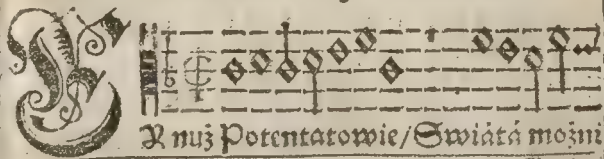 nuż Potentatowie/Swiátá możni